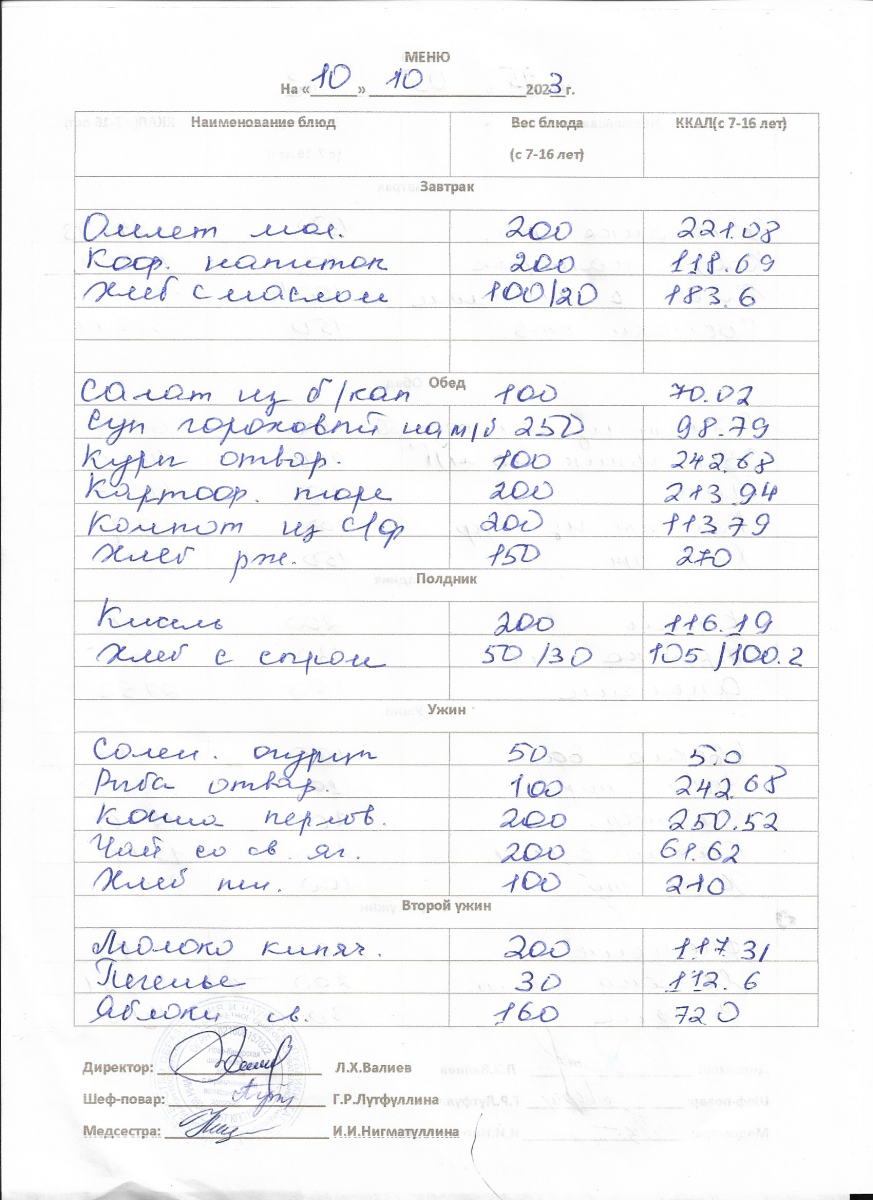 МЕНЮ
На «10» 10 2023 г.
Наименование блюд Вес блюда (с 7-16 лет) ККАЛ(с 7-16 лет)
Завтрак
Омлет мол. 200 221.08
Коф. напиток 200 118.69
Хлеб с маслом 100/20 183.6
Обед
Салат из б/кап 100 70.02
Суп гороховый на м/б 250 98.79
Куры отвар. 100 242.68
Картоф. пюре 200 213.94
Компот из с/ф 200 113.79
Хлеб рж. 150 270
Полдник
Кисель 200 116.19
Хлеб с сыром 50/30 105/100.2
Ужин
Солен. огурцы 50 5.0
Рыба отвар. 100 242.68
Каша перлов. 200 250.52
Чай со св. яг. 200 61.62
Хлеб пш. 100 210
Второй ужин
Молоко кипяч. 200 117.31
Печенье 30 112.6
Яблоки св. 160 720
Директор: Л.Х.Валиев
Шеф-повар: Г.Р.Лутфуллина
Медсестра: И.И.Нигматуллина